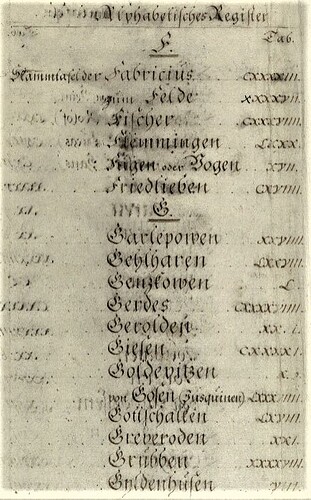 Alphabetisches Register
Tab.
F.
Stammtafel der Fabricius CXXXXIII.
zum Felde XXXXVII.
Fischer CXXXVIII.
Flemmingen LXIXX.
Fugen oder Vogen XVII.
Friedlieben CXVIII.
G.
Garlepowen XXVIIII.
Gehlharen LXXVIII.
Genzkowen L.
Gerdes
Gerolden XX. I.
Giesen CXXXXXI.
Goldevitzen X.
von Gosen
Gottschalken LXVIII.
Greveroden XXI.
Grubben XXXXVIII.
Gyldenhusen VIII.